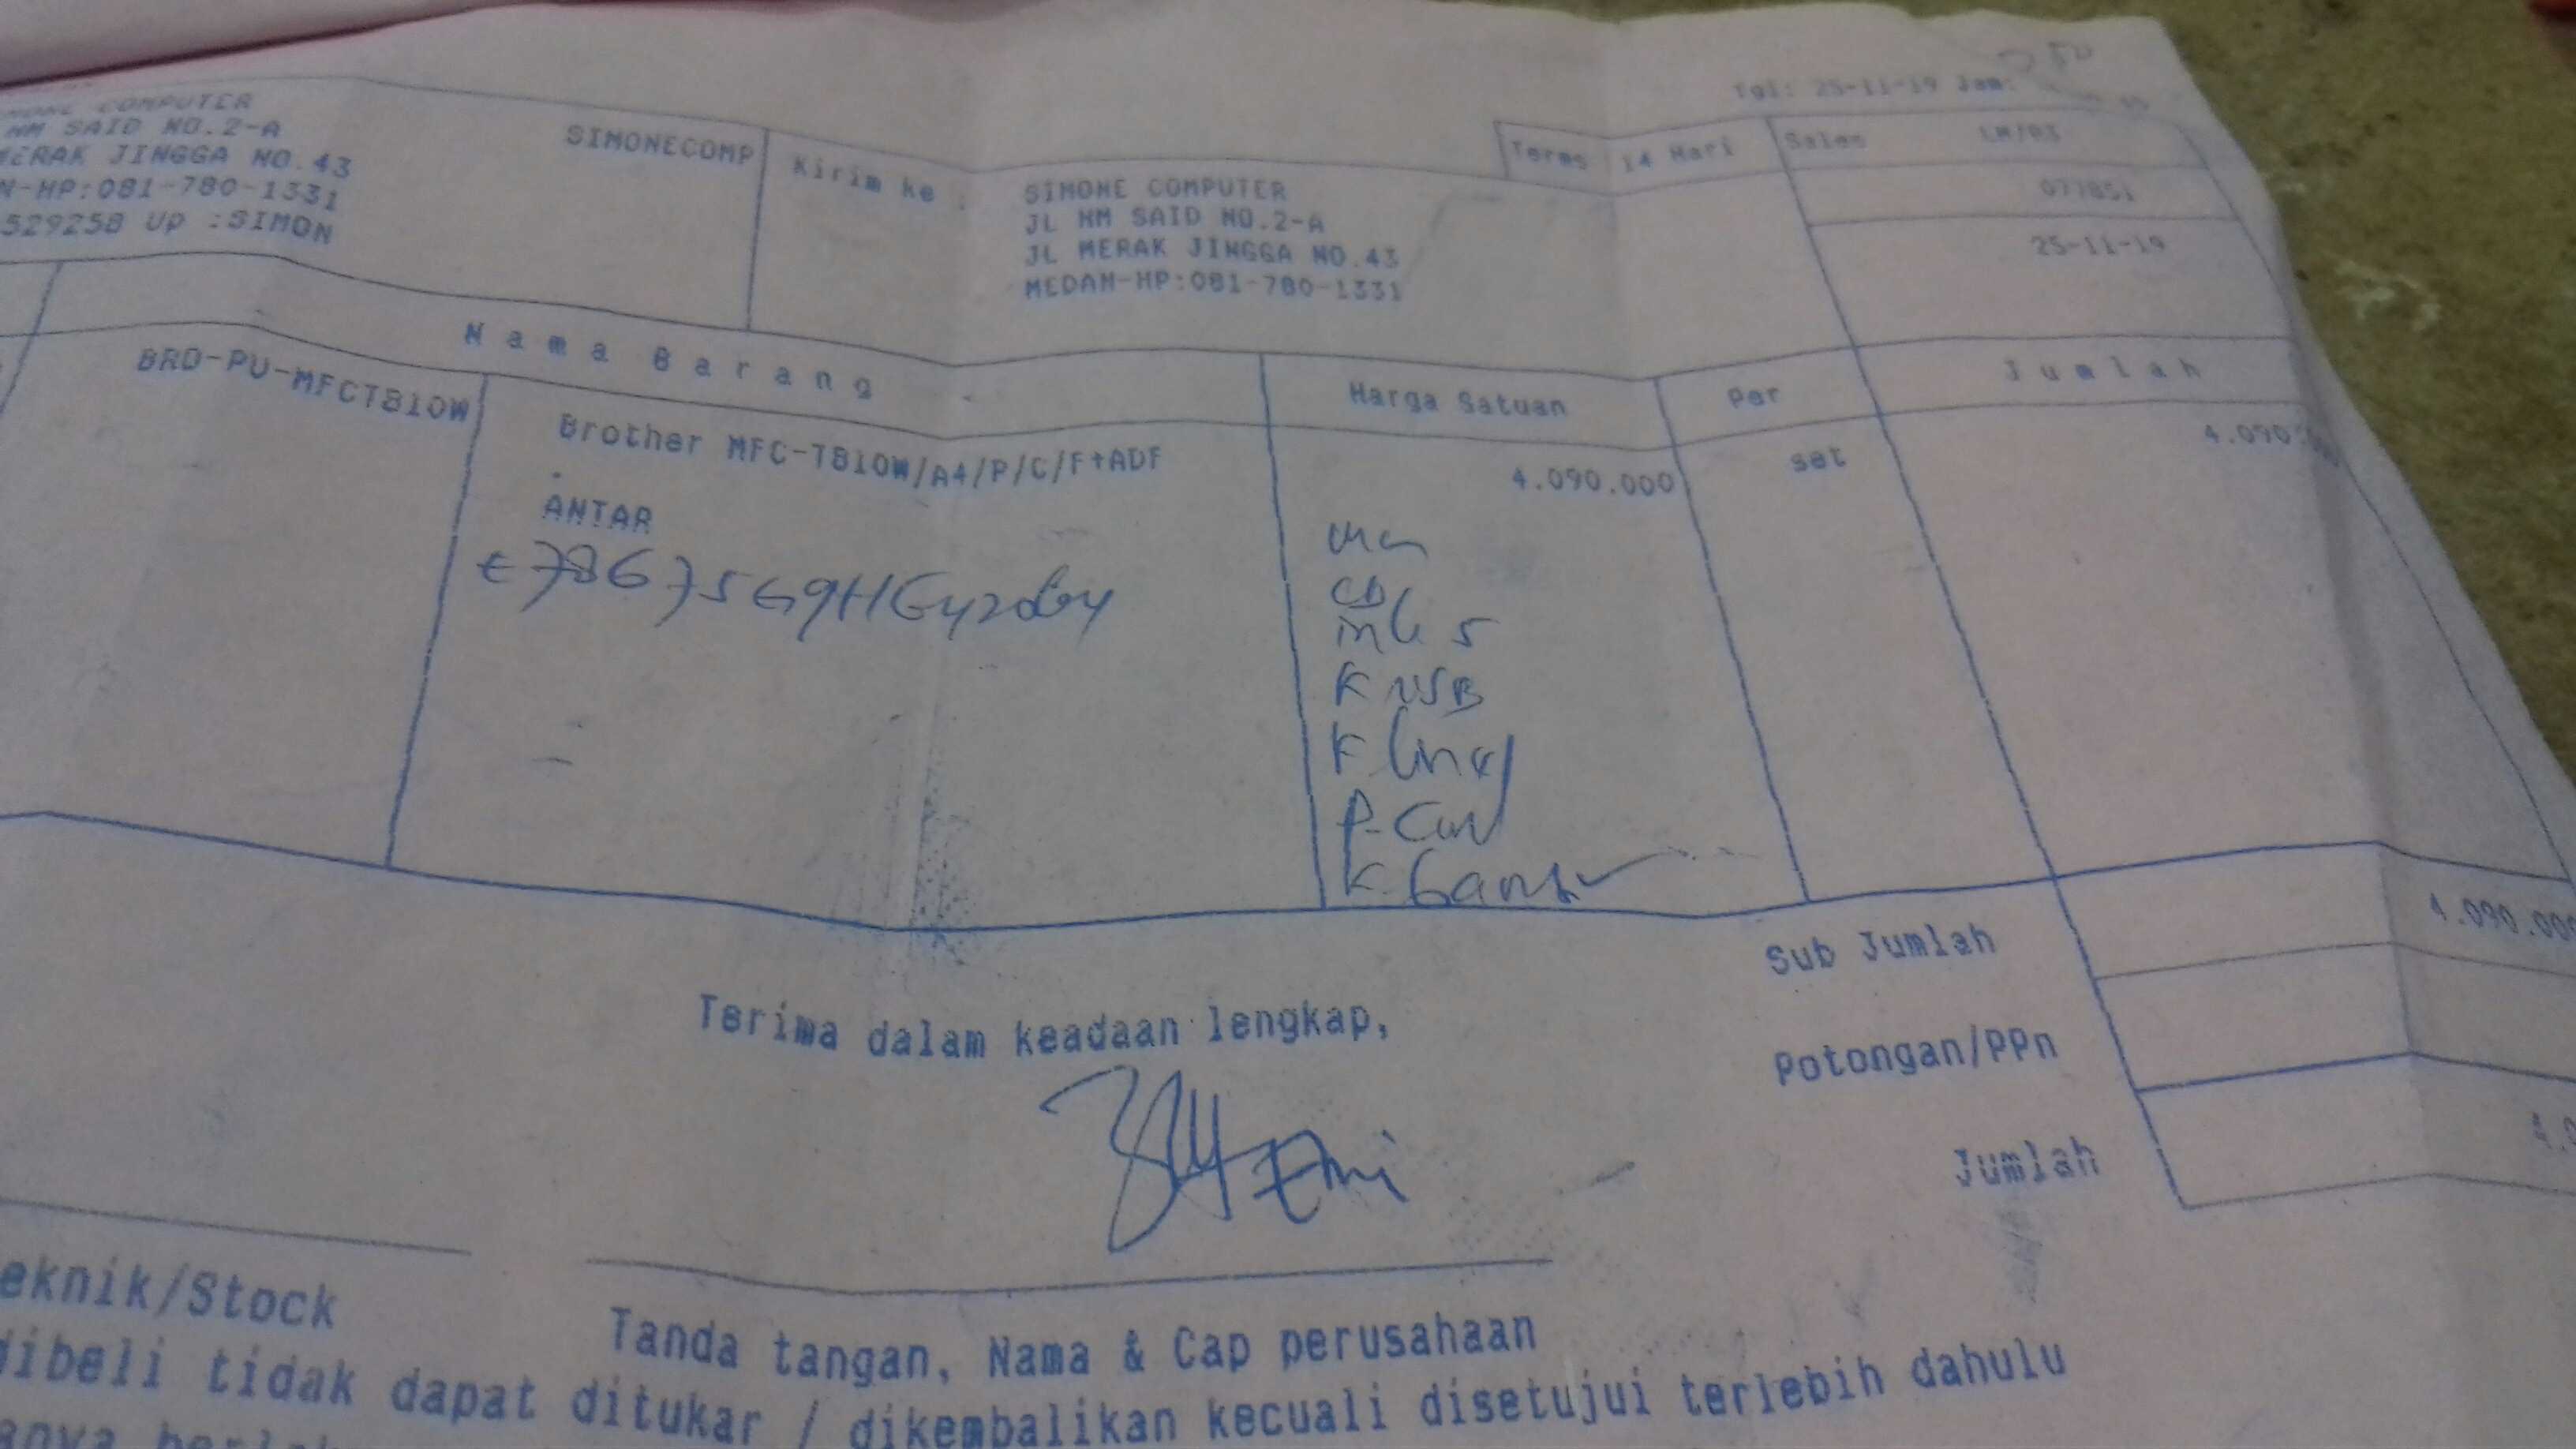 Tgl: 25-11-19 Jam:
COMPUTER
NM SAID NO.2-A
MERAK JINGGA NO.43
N-HP:081-780-1331
529258 Up :SIMON
SIMONECOMP
Kirim ke :
SIMONE COMPUTER
JL HM SAID NO.2-A
JL MERAK JINGGA NO.43
MEDAN-HP:081-780-1331
Terms 14 Hari
Sales
077851
25-11-19
Nama Barang
Harga Satuan
Per
Jumlah
BRO-PU-MFCT810W
Brother MFC-T810W/A4/P/C/F+ADF
4.090.000
set
4.090
.
ANTAR
CD
ink 5
K USB
Sub Jumlah
4.090.000
Potongan/PPn
Jumlah
Terima dalam keadaan lengkap,
eknik/Stock
Tanda tangan, Nama & Cap perusahaan
dibeli tidak dapat ditukar / dikembalikan kecuali disetujui terlebih dahulu